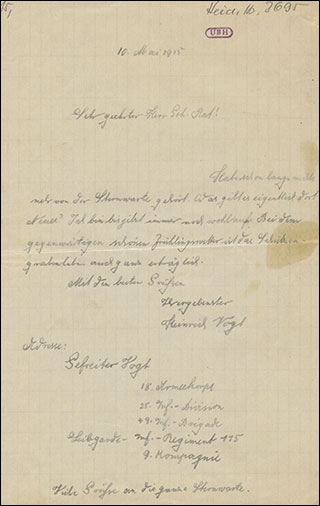 Heid. Hs. 3695
UBH
10. Mai 1915
Sehr geehrter Herr Geh. Rat!
Habe schon lange nichts
mehr von der Sternwarte gehört. Was gibt es eigentlich dort
Neues? Ich bin bis jetzt immer noch wohlauf. Bei dem
gegenwärtigen schönen Frühlingswetter ist das Schützen-
grabenleben auch ganz erträglich.
Mit den besten Grüßen
Ihr ergebenster
Heinrich Vogt
Adresse:
Gefreiter Vogt
18. Armeekorps
25. Inf.-Division
49. Inf.-Brigade
Leibgarde-Inf.-Regiment 115
9. Kompagnie
Viele Grüße an die ganze Sternwarte.